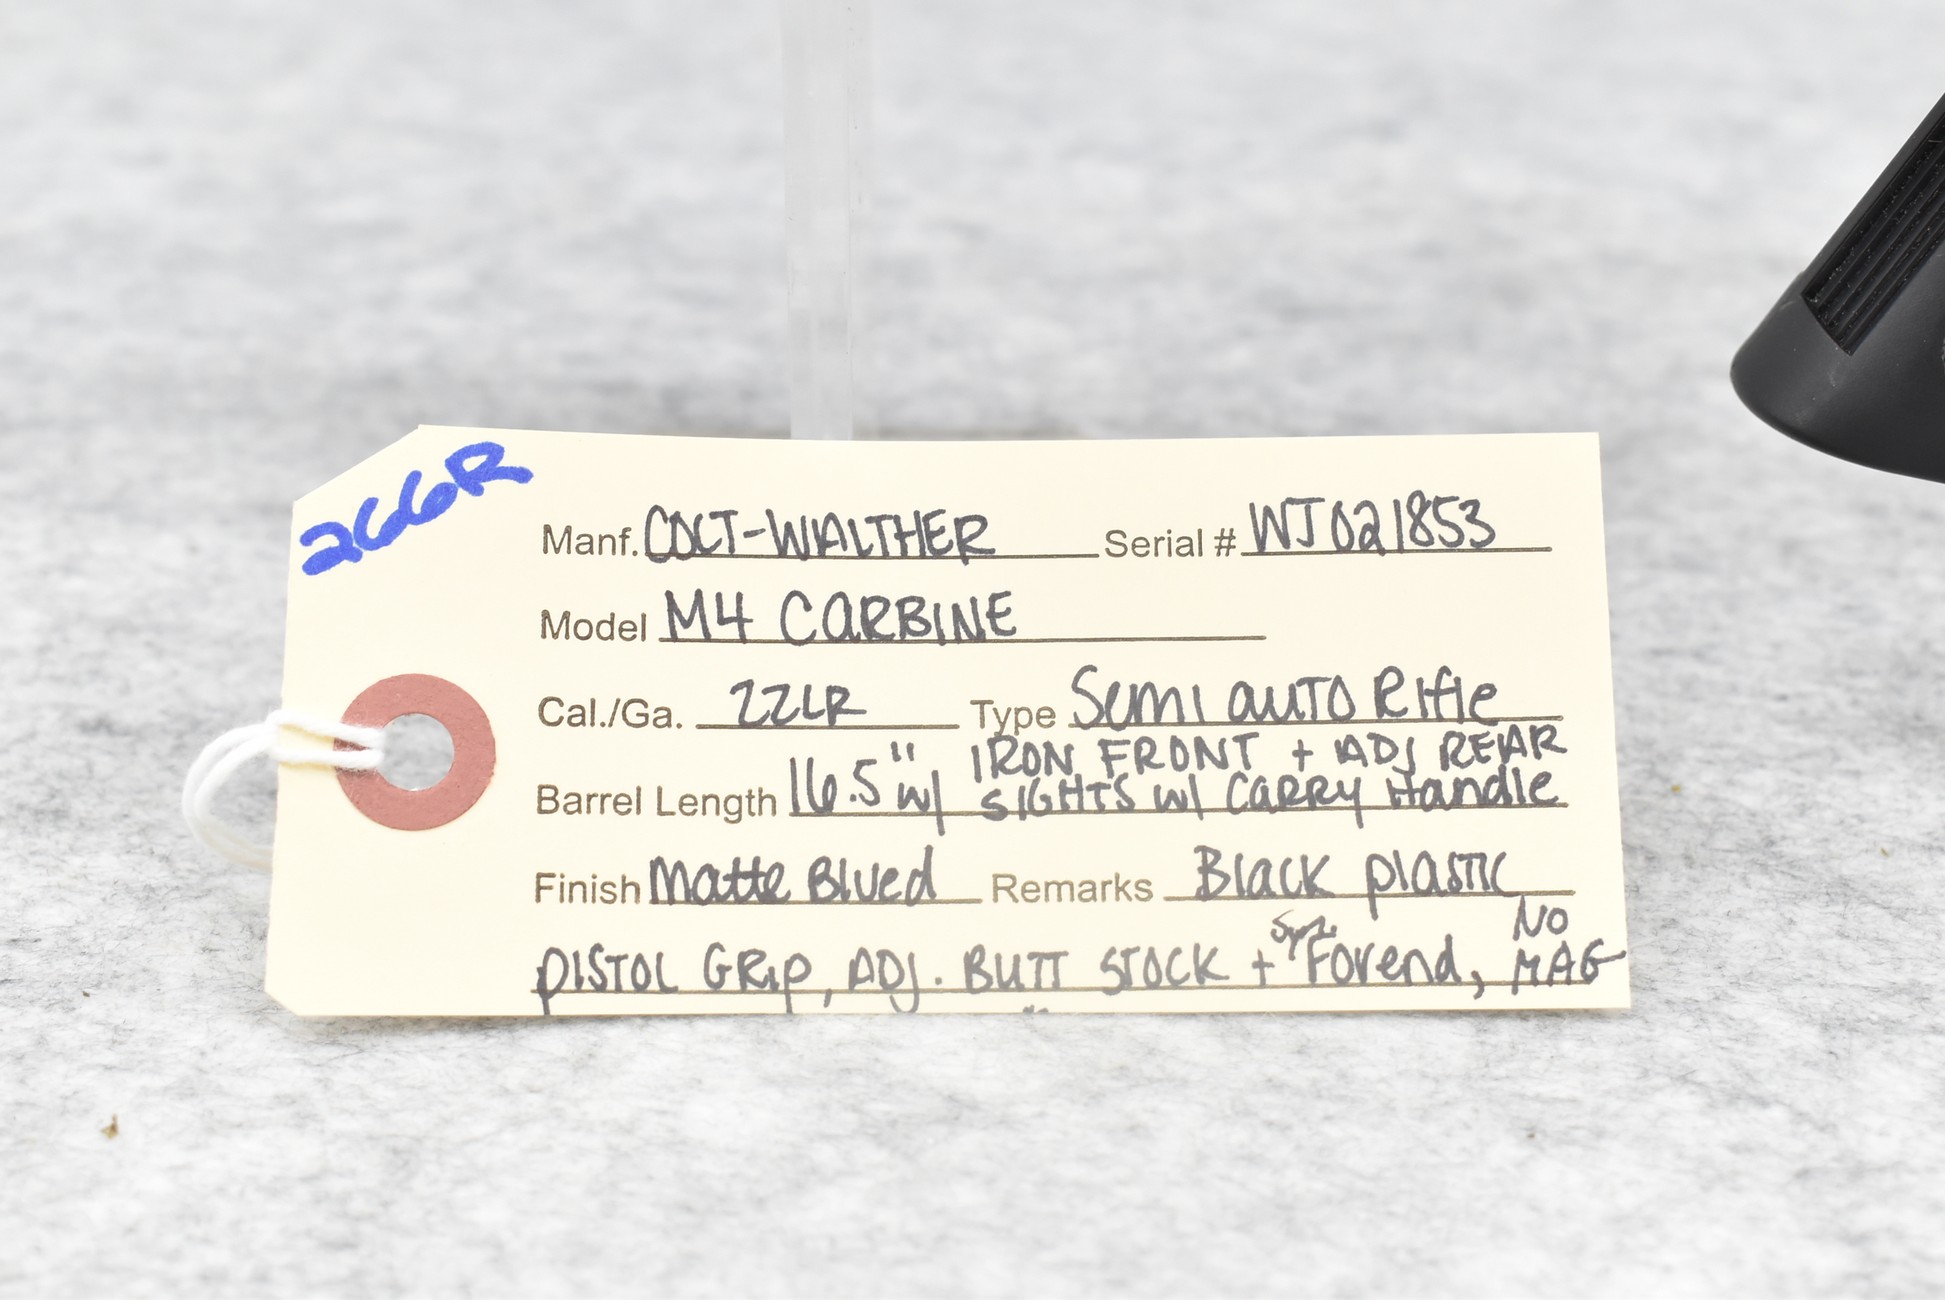 266R
Manf. COLT-WALTHER Serial # WJ021853
Model M4 CARBINE
Cal./Ga. 22LR Type Semi auto Rifle
IRON FRONT + ADJ REAR
Barrel Length 16.5" w/ SIGHTS w/ CARRY Handle
Finish Matte Blued Remarks Black plastic
PISTOL GRIP, ADJ. BUTT STOCK + Syn. Forend, NO MAG